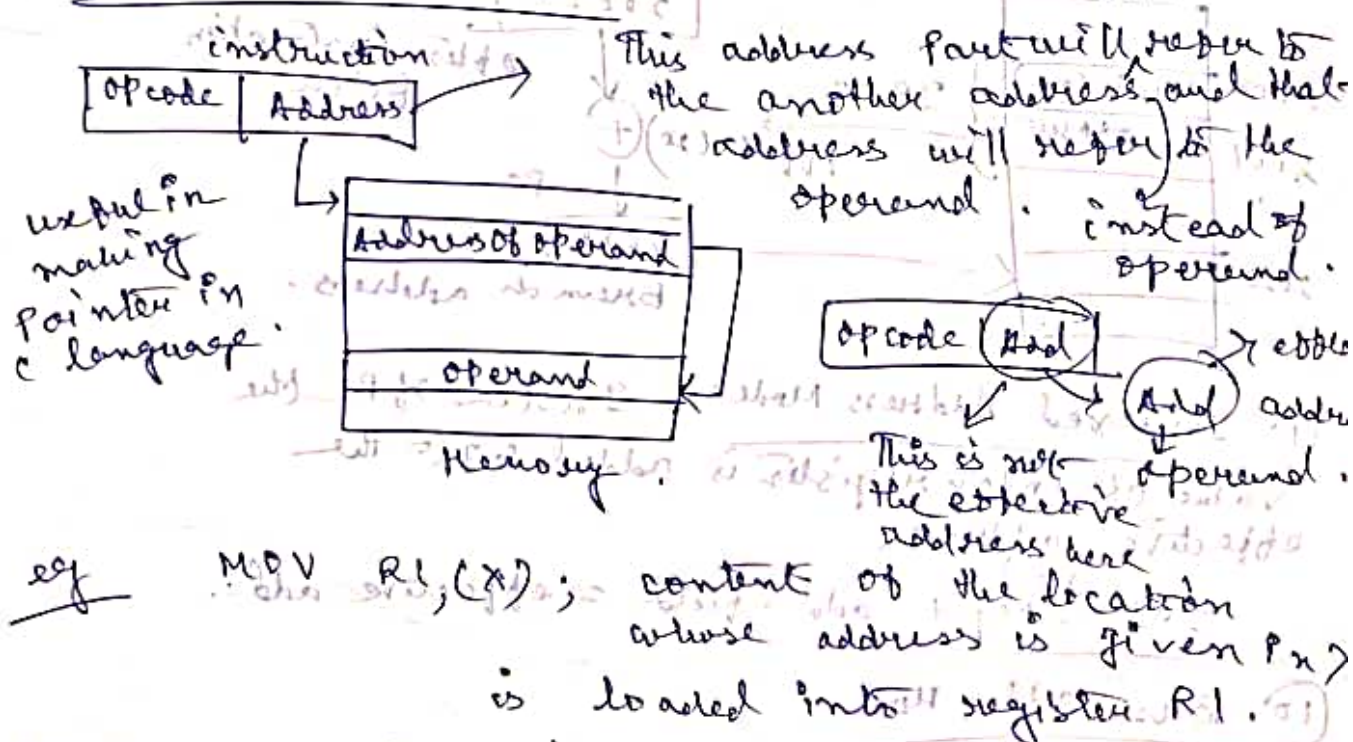 instruction
opcode | Address
This address Part will refer to
the another address and that
address will refer to the
operand. instead of
operand.
useful in
making
Pointer in
c language.
Address Of Operand
operand
Memory.
opcode | Add
Add
address
operand.
This is not
the effective
address here
eg MOV R1,(X); content of the location
whose address is given in X
is loaded into register R1.